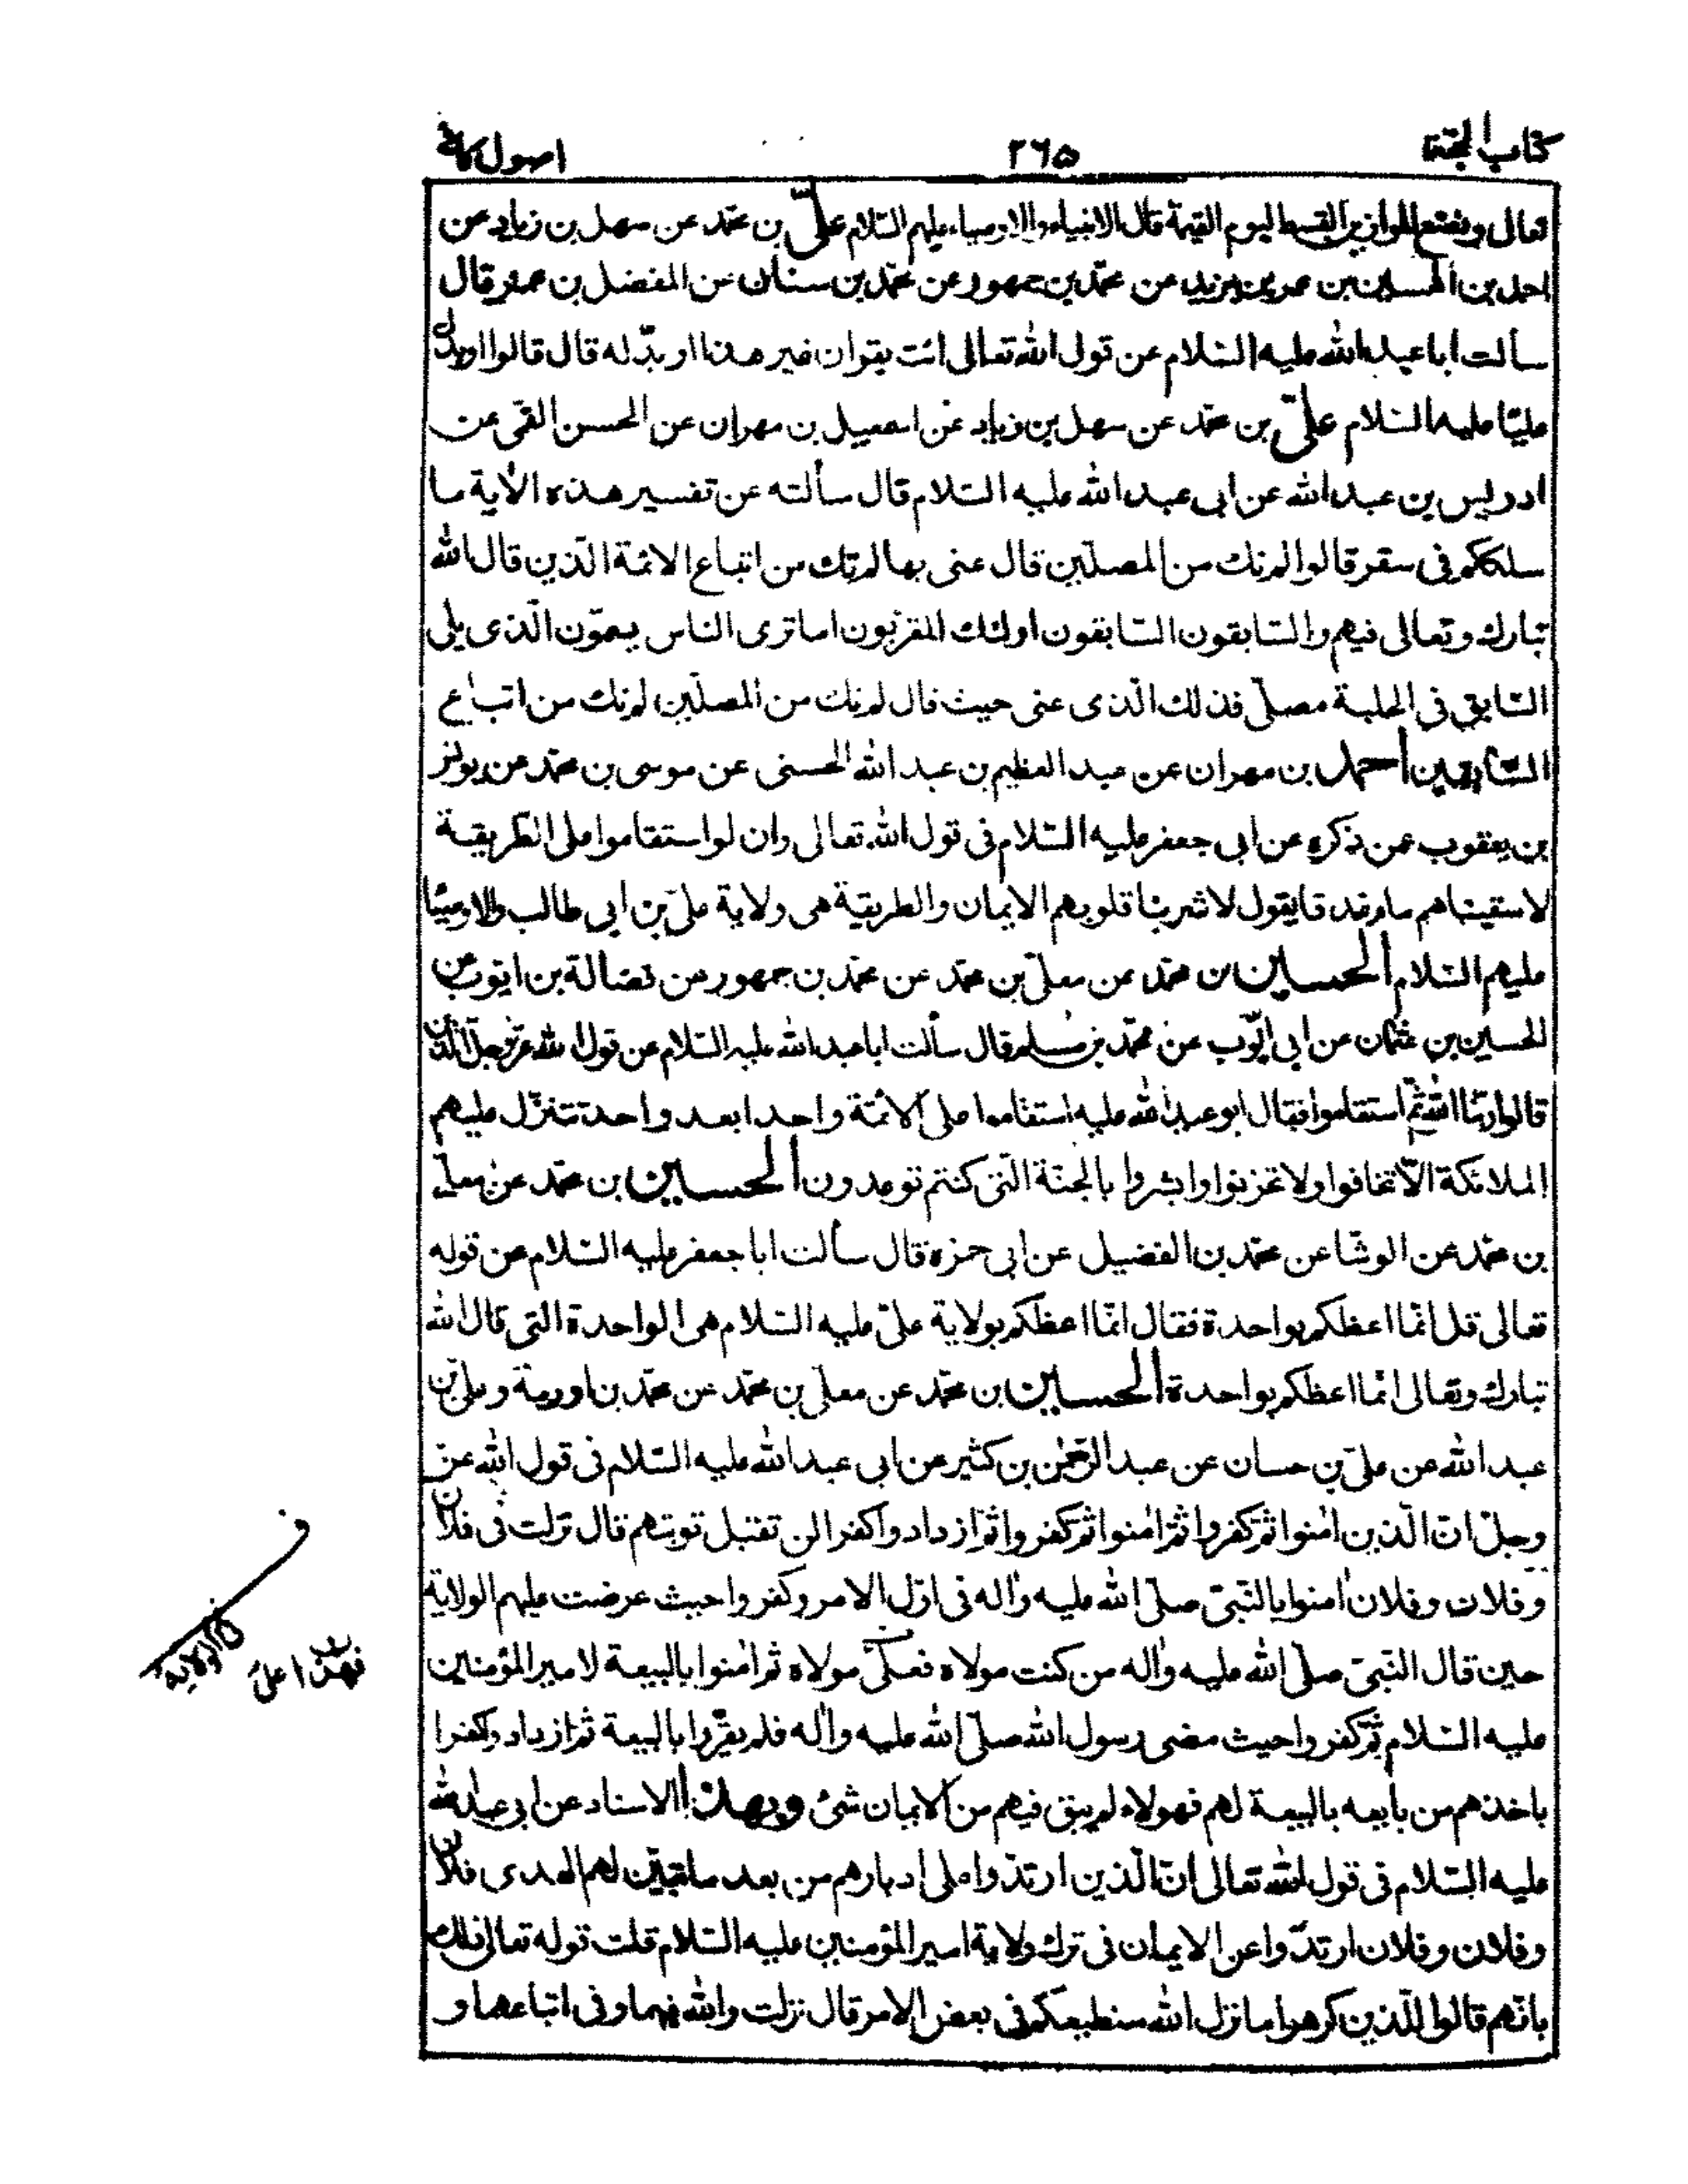 كتاب الحجة
٢٦٥
اصول كافى
تعالى ونضع الموازين القسط ليوم القيمة قال الانبياء والاوصياء عليهم السّلام علىّ بن محمّد عن سهل بن زياد عن
احمد بن الحسين بن عمر بن يزيد عن محمّد بن جمهور عن محمّد بن سنان عن المفضل بن عمر قال
سألت ابا عبد الله عليه السّلام عن قول الله تعالى ائت بقران غير هذا او بدّله قال قالوا او بدل
عليّا عليه السّلام علىّ بن محمّد عن سهل بن زياد عن اسمعيل بن مهران عن الحسن القمّى عن
ادريس بن عبد الله عن ابى عبد الله عليه السّلام قال سألته عن تفسير هذه الأية ما
سلككم فى سقر قالوا لم نك من المصلّين قال عنى بها لم نك من اتباع الائمة الّذين قال الله
تبارك وتعالى فيهم والسّابقون السّابقون اولئك المقرّبون اما ترى الناس يسمّون الّذى يلى
السّابق فى الحلبة مصلّى فذلك الّذى عنى حيث قال لم نك من المصلّين لم نك من اتباع
السّابقين احمد بن مهران عن عبد العظيم بن عبد الله الحسنى عن موسى بن محمّد عن يونس
بن يعقوب عمن ذكره عن ابى جعفر عليه السّلام فى قول الله تعالى وان لو استقاموا على الطريقة
لاسقيناهم ماء غدقا يقول لاشربنا قلوبهم الايمان والطريقة هى ولاية علىّ بن ابى طالب والاوصيا
عليهم السّلام الحسين بن محمّد عن معلّى بن محمّد عن محمّد بن جمهور عن فضالة بن ايّوب عن
الحسين بن عثمان عن ابى ايّوب عن محمّد بن مسلم قال سألت ابا عبد الله عليه السّلام عن قول الله عزّ وجلّ الّذين
قالوا ربّنا الله ثمّ استقاموا فقال ابو عبد الله عليه استقاموا على الائمّة واحدا بعد واحد تتنزّل عليهم
الملائكة الّا تخافوا ولا تحزنوا وابشروا بالجنّة الّتى كنتم توعدون الحسين بن محمّد عن معلّى
بن محمّد عن الوشّا عن محمّد بن الفضيل عن ابى حمزة قال سألت ابا جعفر عليه السّلام عن قوله
تعالى قل انّما اعظكم بواحدة فقال انّما اعظكم بولاية علىّ عليه السّلام هى الواحدة التى قال الله
تبارك وتعالى انّما اعظكم بواحدة الحسين بن محمّد عن معلّى بن محمّد عن محمّد بن اورمة وعلىّ بن
عبد الله عن علىّ بن حسان عن عبد الرّحمٰن بن كثير عن ابى عبد الله عليه السّلام فى قول الله عزّ
وجلّ انّ الّذين اٰمنوا ثمّ كفروا ثمّ اٰمنوا ثمّ كفروا ثمّ ازدادوا كفرا لن تقبل توبتهم قال نزلت فى فلان
وفلان وفلان اٰمنوا بالنّبىّ صلّى الله عليه واٰله فى اوّل الامر وكفروا حيث عرضت عليهم الولاية
حين قال النّبىّ صلّى الله عليه واٰله من كنت مولاه فعلىّ مولاه ثم اٰمنوا بالبيعة لامير المؤمنين
عليه السّلام ثمّ كفروا حيث مضى رسول الله صلّى الله عليه واٰله فلم يقرّوا بالبيعة ثمّ ازدادوا كفرا
باخذهم من بايعه بالبيعة لهم فهولاء لم يبق فيهم من الايمان شئ وبهذا الاسناد عن ابى عبد الله
عليه السّلام فى قول الله تعالى انّ الّذين ارتدّوا على ادبارهم من بعد ما تبيّن لهم الهدى فلان
وفلان وفلان ارتدّوا عن الايمان فى ترك ولاية امير المؤمنين عليه السّلام قلت قوله تعالى ذلك
بانّهم قالوا للّذين كرهوا ما نزل الله سنطيعكم فى بعض الامر قال نزلت والله فيهما وفى اتباعهما و
فهذا علىّ